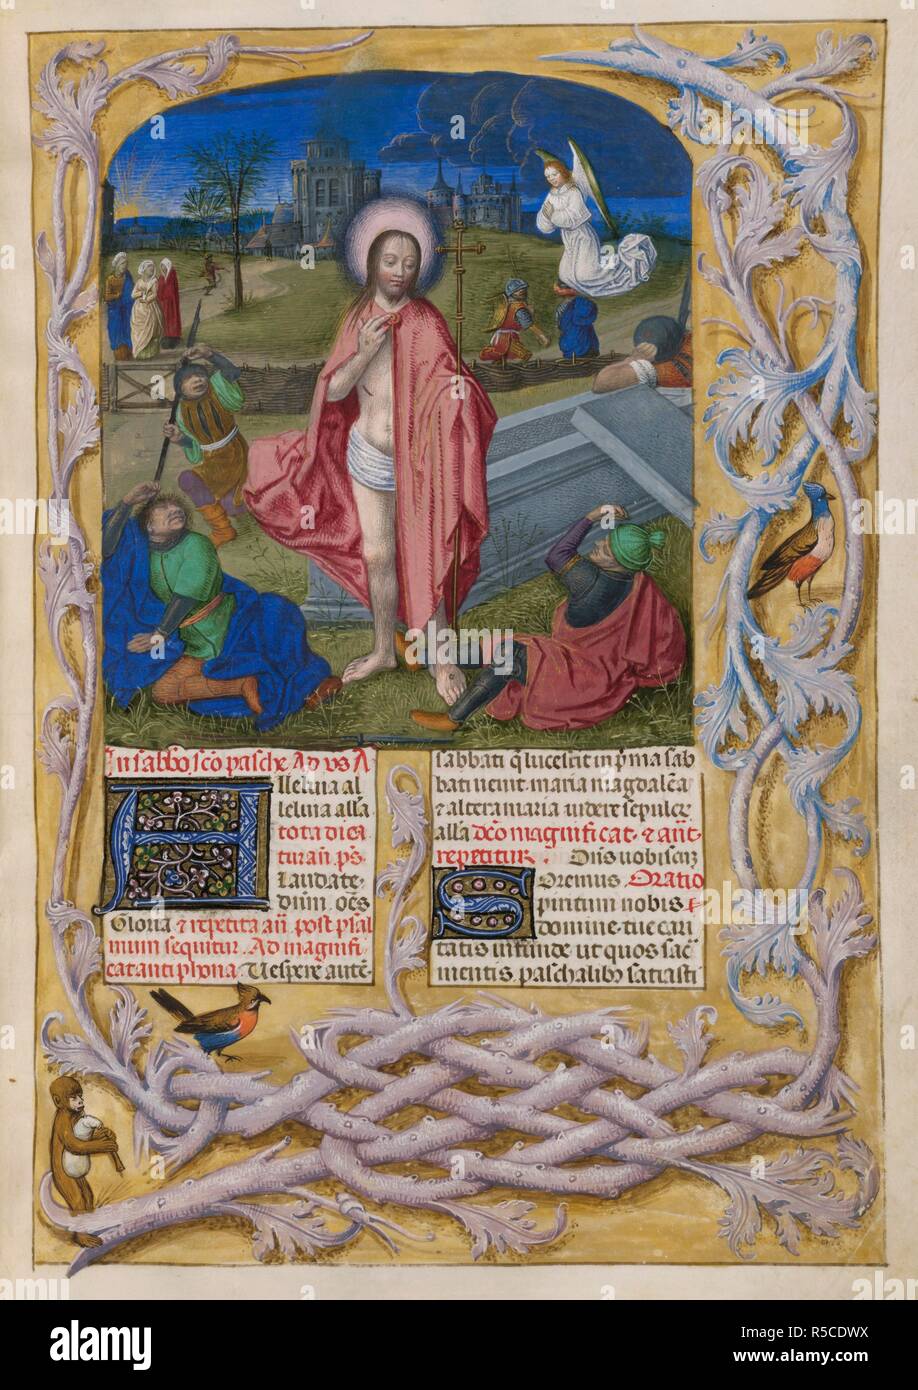 In sabbo. sco pasche Ad vs A
lleluia al
leluia alla
tota dicā
tur añ. ps.
Laudate
dnm. oēs
Gloria & repetita añ post psal
mum sequitur. Ad magnifi
cat antiphona. Vespere aute
sabbati q̄ lucescit in pma sab
bati venit. maria magdalēa
& altera maria videre sepulcr
alla dco magnificat. & ant.
repetitur. Dn̄s vobiscū
Oremus Oratio
Spiritum nobis
domine. tue cari
tatis infunde. ut quos sac
mentis. paschalibȝ satiasti
alamy
Image ID: R5CDWX
www.alamy.com